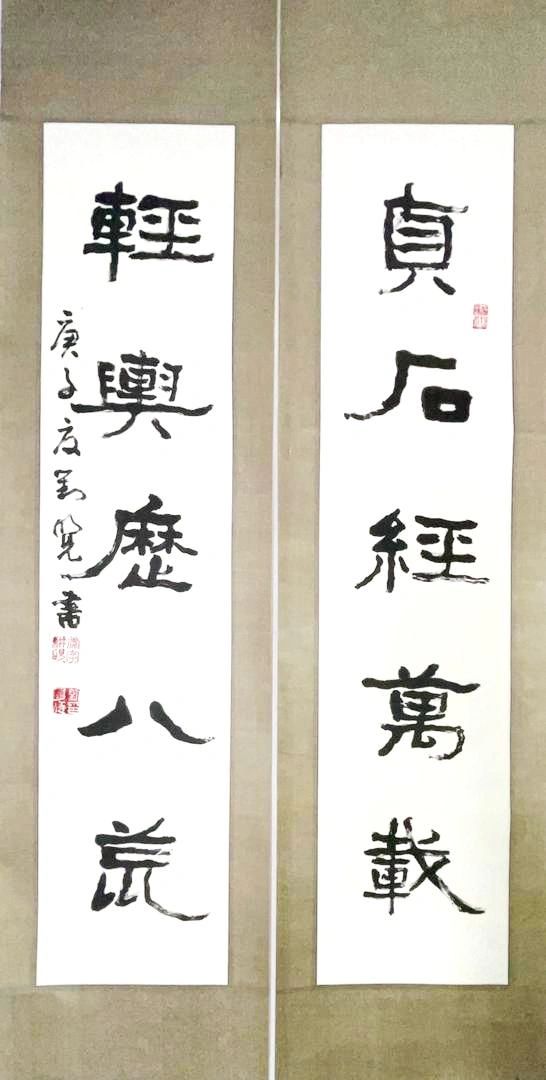 貞石經萬載
輕輿歷八荒
庚子夏劉曉一書